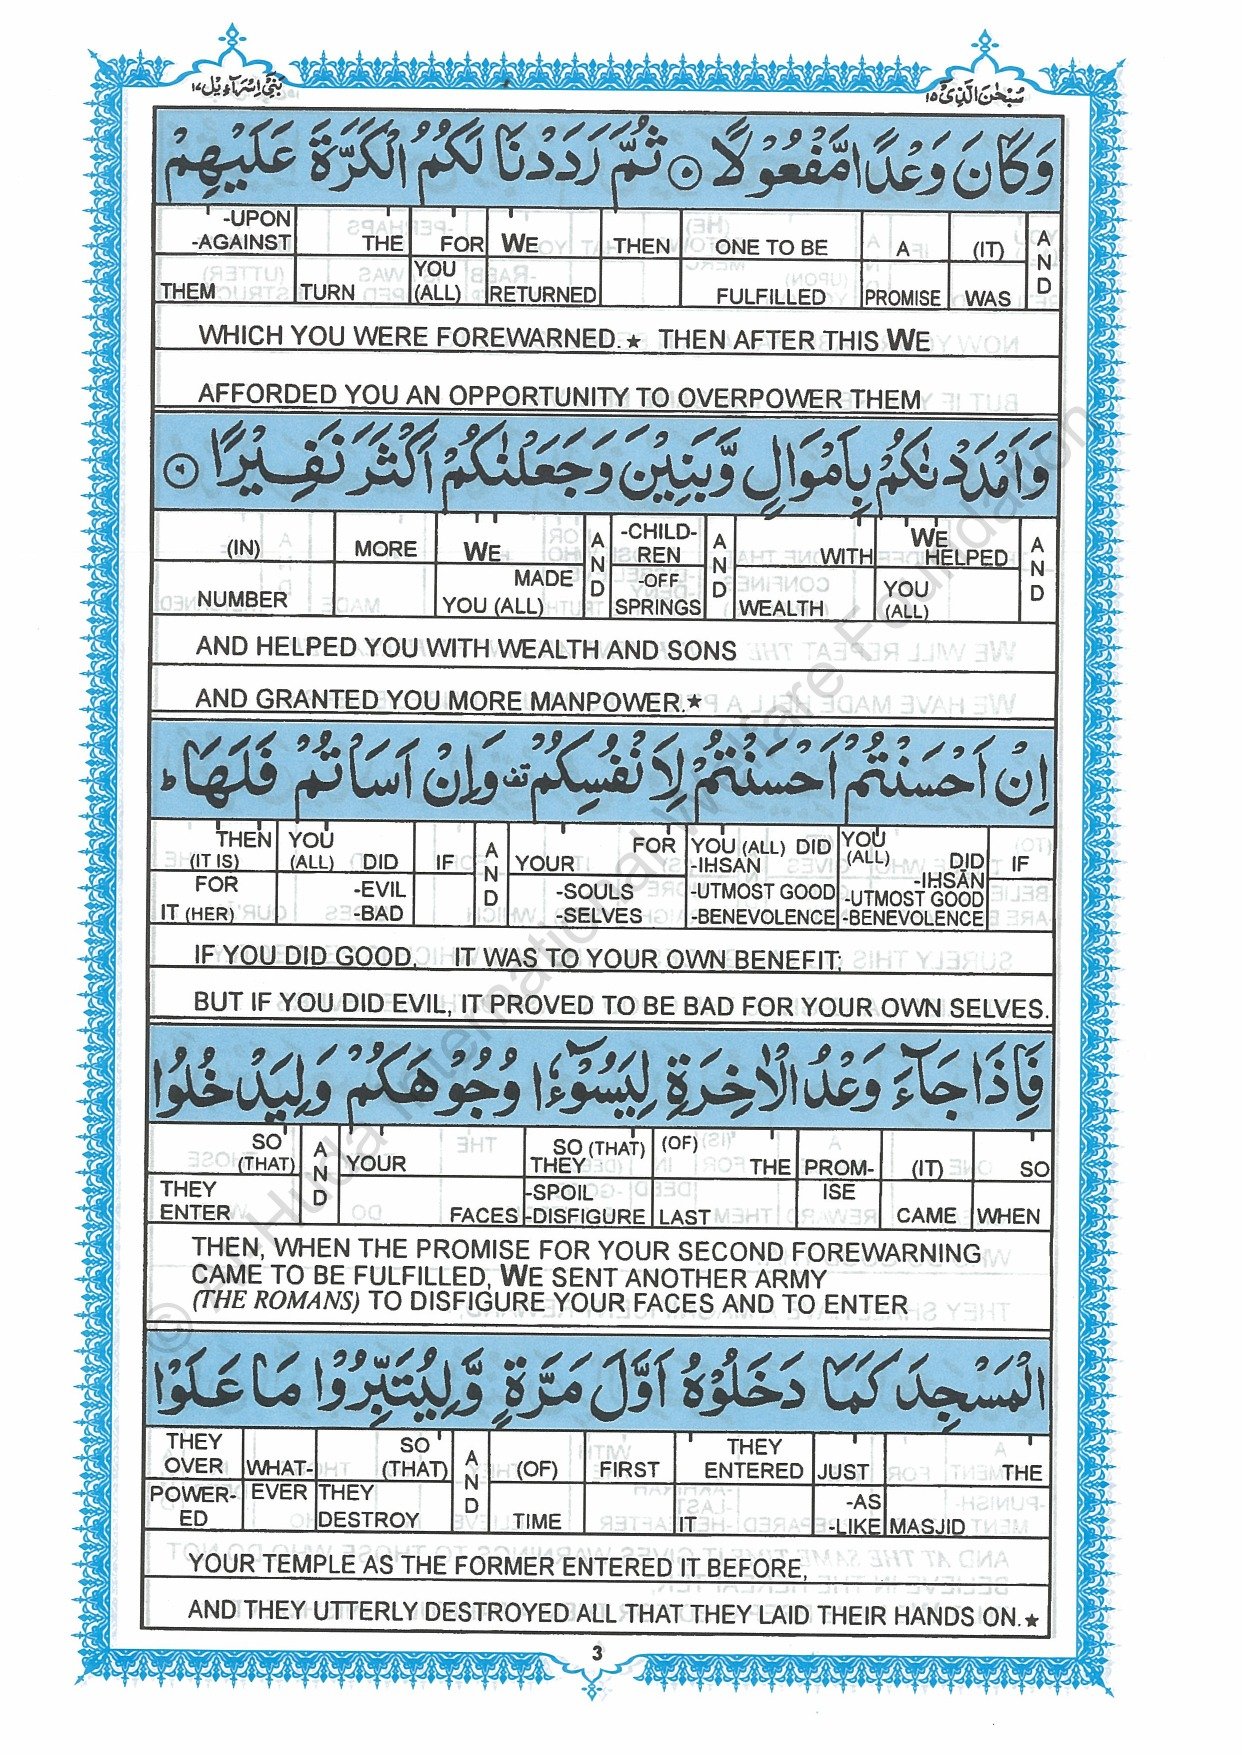 بَنِيْٓ اِسْرَآءِيْل ١٧ سُبْحٰنَ الَّذِيْٓ ١٥
وَكَانَ وَعْدًا مَّفْعُوْلًا ۝٥ ثُمَّ رَدَدْنَا لَكُمُ الْكَرَّةَ عَلَيْهِمْ
-UPON -AGAINST THE FOR WE THEN ONE TO BE A (IT) AND
THEM TURN YOU (ALL) RETURNED FULFILLED PROMISE WAS
WHICH YOU WERE FOREWARNED.★ THEN AFTER THIS WE
AFFORDED YOU AN OPPORTUNITY TO OVERPOWER THEM
وَاَمْدَدْنٰكُمْ بِاَمْوَالٍ وَّبَنِيْنَ وَجَعَلْنٰكُمْ اَكْثَرَ نَفِيْرًا ۝٦
(IN) MORE WE AND -CHILD-REN AND WITH WE HELPED AND
NUMBER MADE YOU (ALL) -OFF SPRINGS WEALTH YOU (ALL)
AND HELPED YOU WITH WEALTH AND SONS
AND GRANTED YOU MORE MANPOWER.★
اِنْ اَحْسَنْتُمْ اَحْسَنْتُمْ لِاَنْفُسِكُمْ قف وَاِنْ اَسَاْتُمْ فَلَهَا ط
THEN (IT IS) YOU (ALL) DID IF AND YOUR FOR YOU (ALL) DID -IḤSĀN YOU (ALL) DID -IḤSĀN IF
FOR IT (HER) -EVIL -BAD -SOULS -SELVES -UTMOST GOOD -BENEVOLENCE -UTMOST GOOD -BENEVOLENCE
IF YOU DID GOOD, IT WAS TO YOUR OWN BENEFIT;
BUT IF YOU DID EVIL, IT PROVED TO BE BAD FOR YOUR OWN SELVES.
فَاِذَا جَآءَ وَعْدُ الْاٰخِرَةِ لِيَسُوْٓءٗا وُجُوْهَكُمْ وَلِيَدْخُلُوا
SO (THAT) AND YOUR SO (THAT) THEY (OF) THE PROM- (IT) SO
THEY ENTER FACES -SPOIL -DISFIGURE LAST ISE CAME WHEN
THEN, WHEN THE PROMISE FOR YOUR SECOND FOREWARNING
CAME TO BE FULFILLED, WE SENT ANOTHER ARMY
(THE ROMANS) TO DISFIGURE YOUR FACES AND TO ENTER
الْمَسْجِدَ كَمَا دَخَلُوْهُ اَوَّلَ مَرَّةٍ وَّلِيُتَبِّرُوْا مَا عَلَوْا
THEY OVER WHAT- SO (THAT) AND (OF) FIRST THEY ENTERED JUST THE
POWER-ED EVER THEY DESTROY TIME IT -AS -LIKE MASJID
YOUR TEMPLE AS THE FORMER ENTERED IT BEFORE,
AND THEY UTTERLY DESTROYED ALL THAT THEY LAID THEIR HANDS ON.★
3
Huda International Welfare Foundation